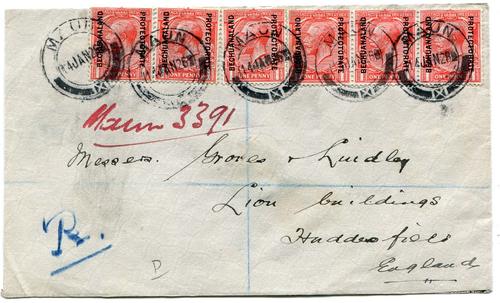 BECHUANALAND PROTECTORATE BECHUANALAND PROTECTORATE BECHUANALAND PROTECTORATE BECHUANALAND PROTECTORATE BECHUANALAND PROTECTORATE BECHUANALAND PROTECTORATE
ONE PENNY ONE PENNY ONE PENNY ONE PENNY ONE PENNY ONE PENNY
MAUN MAUN MAUN MAUN MAUN
Maun 3391
Messers. Groves & Lindley
Lion buildings
Huddersfield
England
R.
D